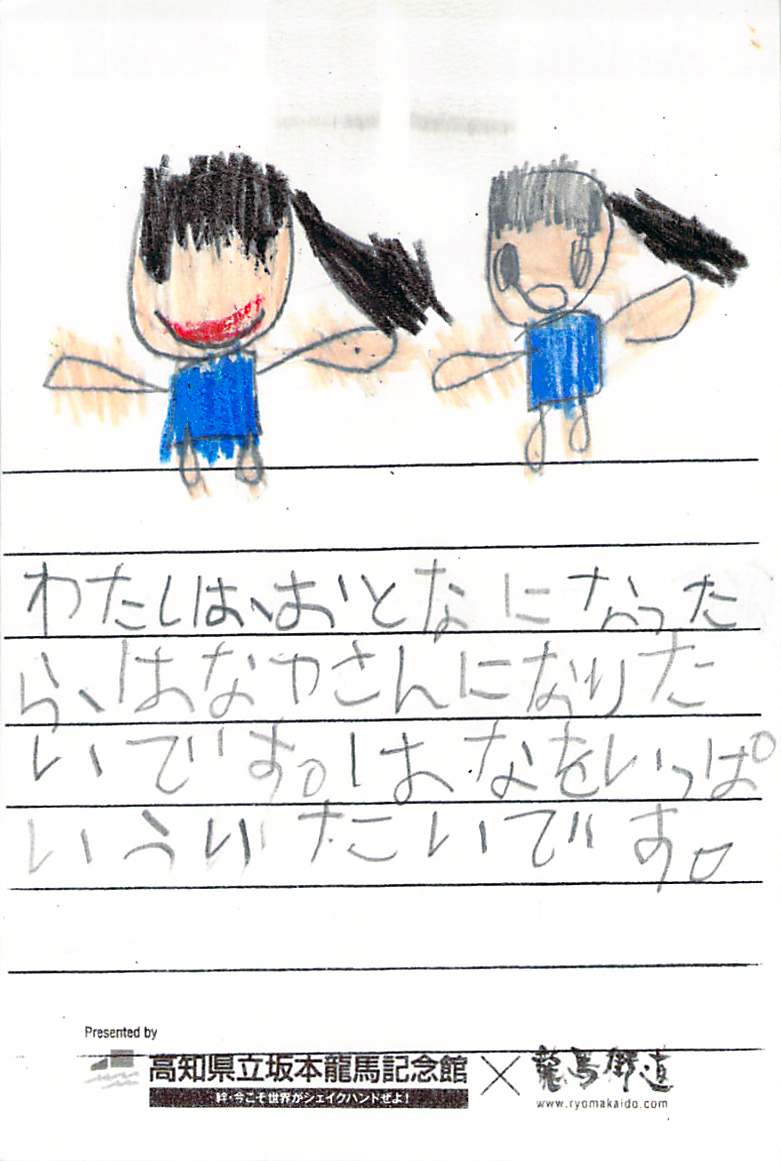 わたしは、おとなになった
ら、はなやさんになりた
いです。はなをいっぱ
いうりたいです。
Presented by
高知県立坂本龍馬記念館 × 龍馬街道
絆・今こそ世界がシェイクハンドぜよ!
www.ryomakaido.com